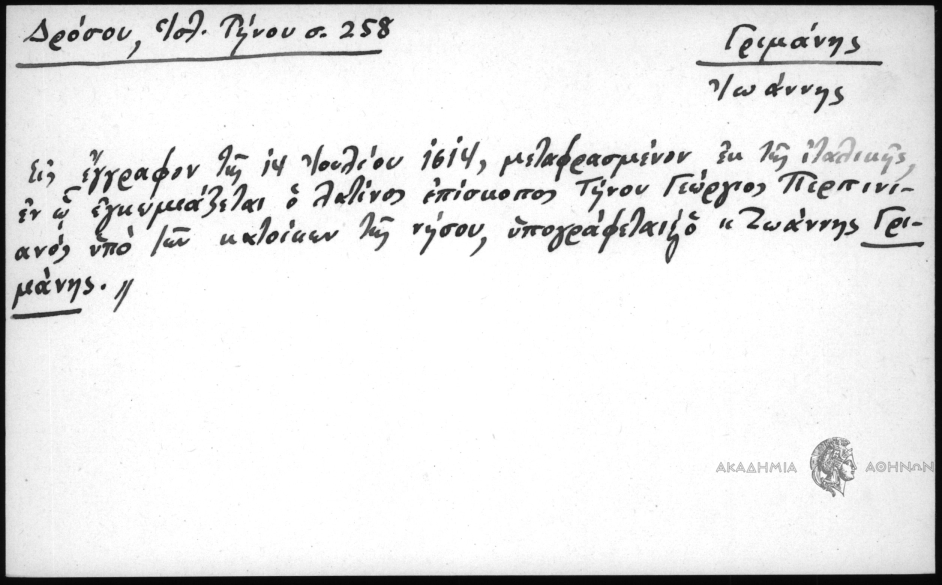 Δρόσου, Ἱστ. Τήνου σ. 258
Γριμάνης
Ἰωάννης
Εἰς ἔγγραφον τῆς 14 Ἰουλίου 1614, μεταφρασμένον ἐκ τῆς ἰταλικῆς,
ἐν ᾧ ἐγκωμιάζεται ὁ λατῖνος ἐπίσκοπος Τήνου Γεώργιος Περπινι-
ανός ὑπό τῶν κατοίκων τῆς νήσου, ὑπογράφεται ὁ κ Ἰωάννης Γρι-
μάνης. //
ΑΚΑΔΗΜΙΑ ΑΘΗΝΩΝ